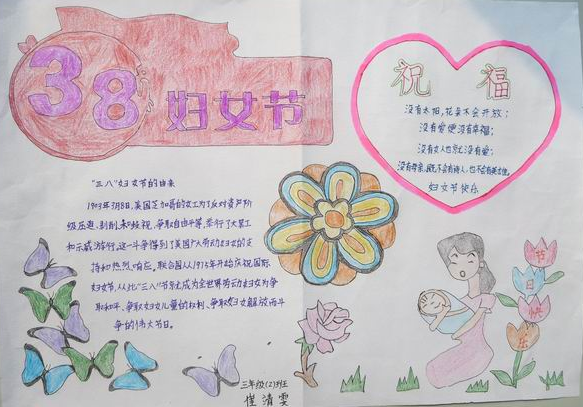 38
妇女节
祝 福
没有太阳,花朵不会开放;
没有爱便没有幸福;
没有女人也就没有爱;
没有母亲,既不会有诗人,也不会有英雄。
妇女节快乐
"三八"妇女节的由来
1903年3月8日,美国芝加哥的女工为了反对资产阶
级压迫、剥削和歧视,争取自由平等,举行了大罢工
和示威游行,这一斗争得到了美国广大劳动妇女的支
持和热烈响应,联合国从1975年开始庆祝国际
妇女节,从此"三八"节就成为全世界劳动妇女为争
取和平、争取妇女儿童的权利、争取妇女解放而斗
争的伟大节日。
节
日
快
乐
三年级(2)班
清雯